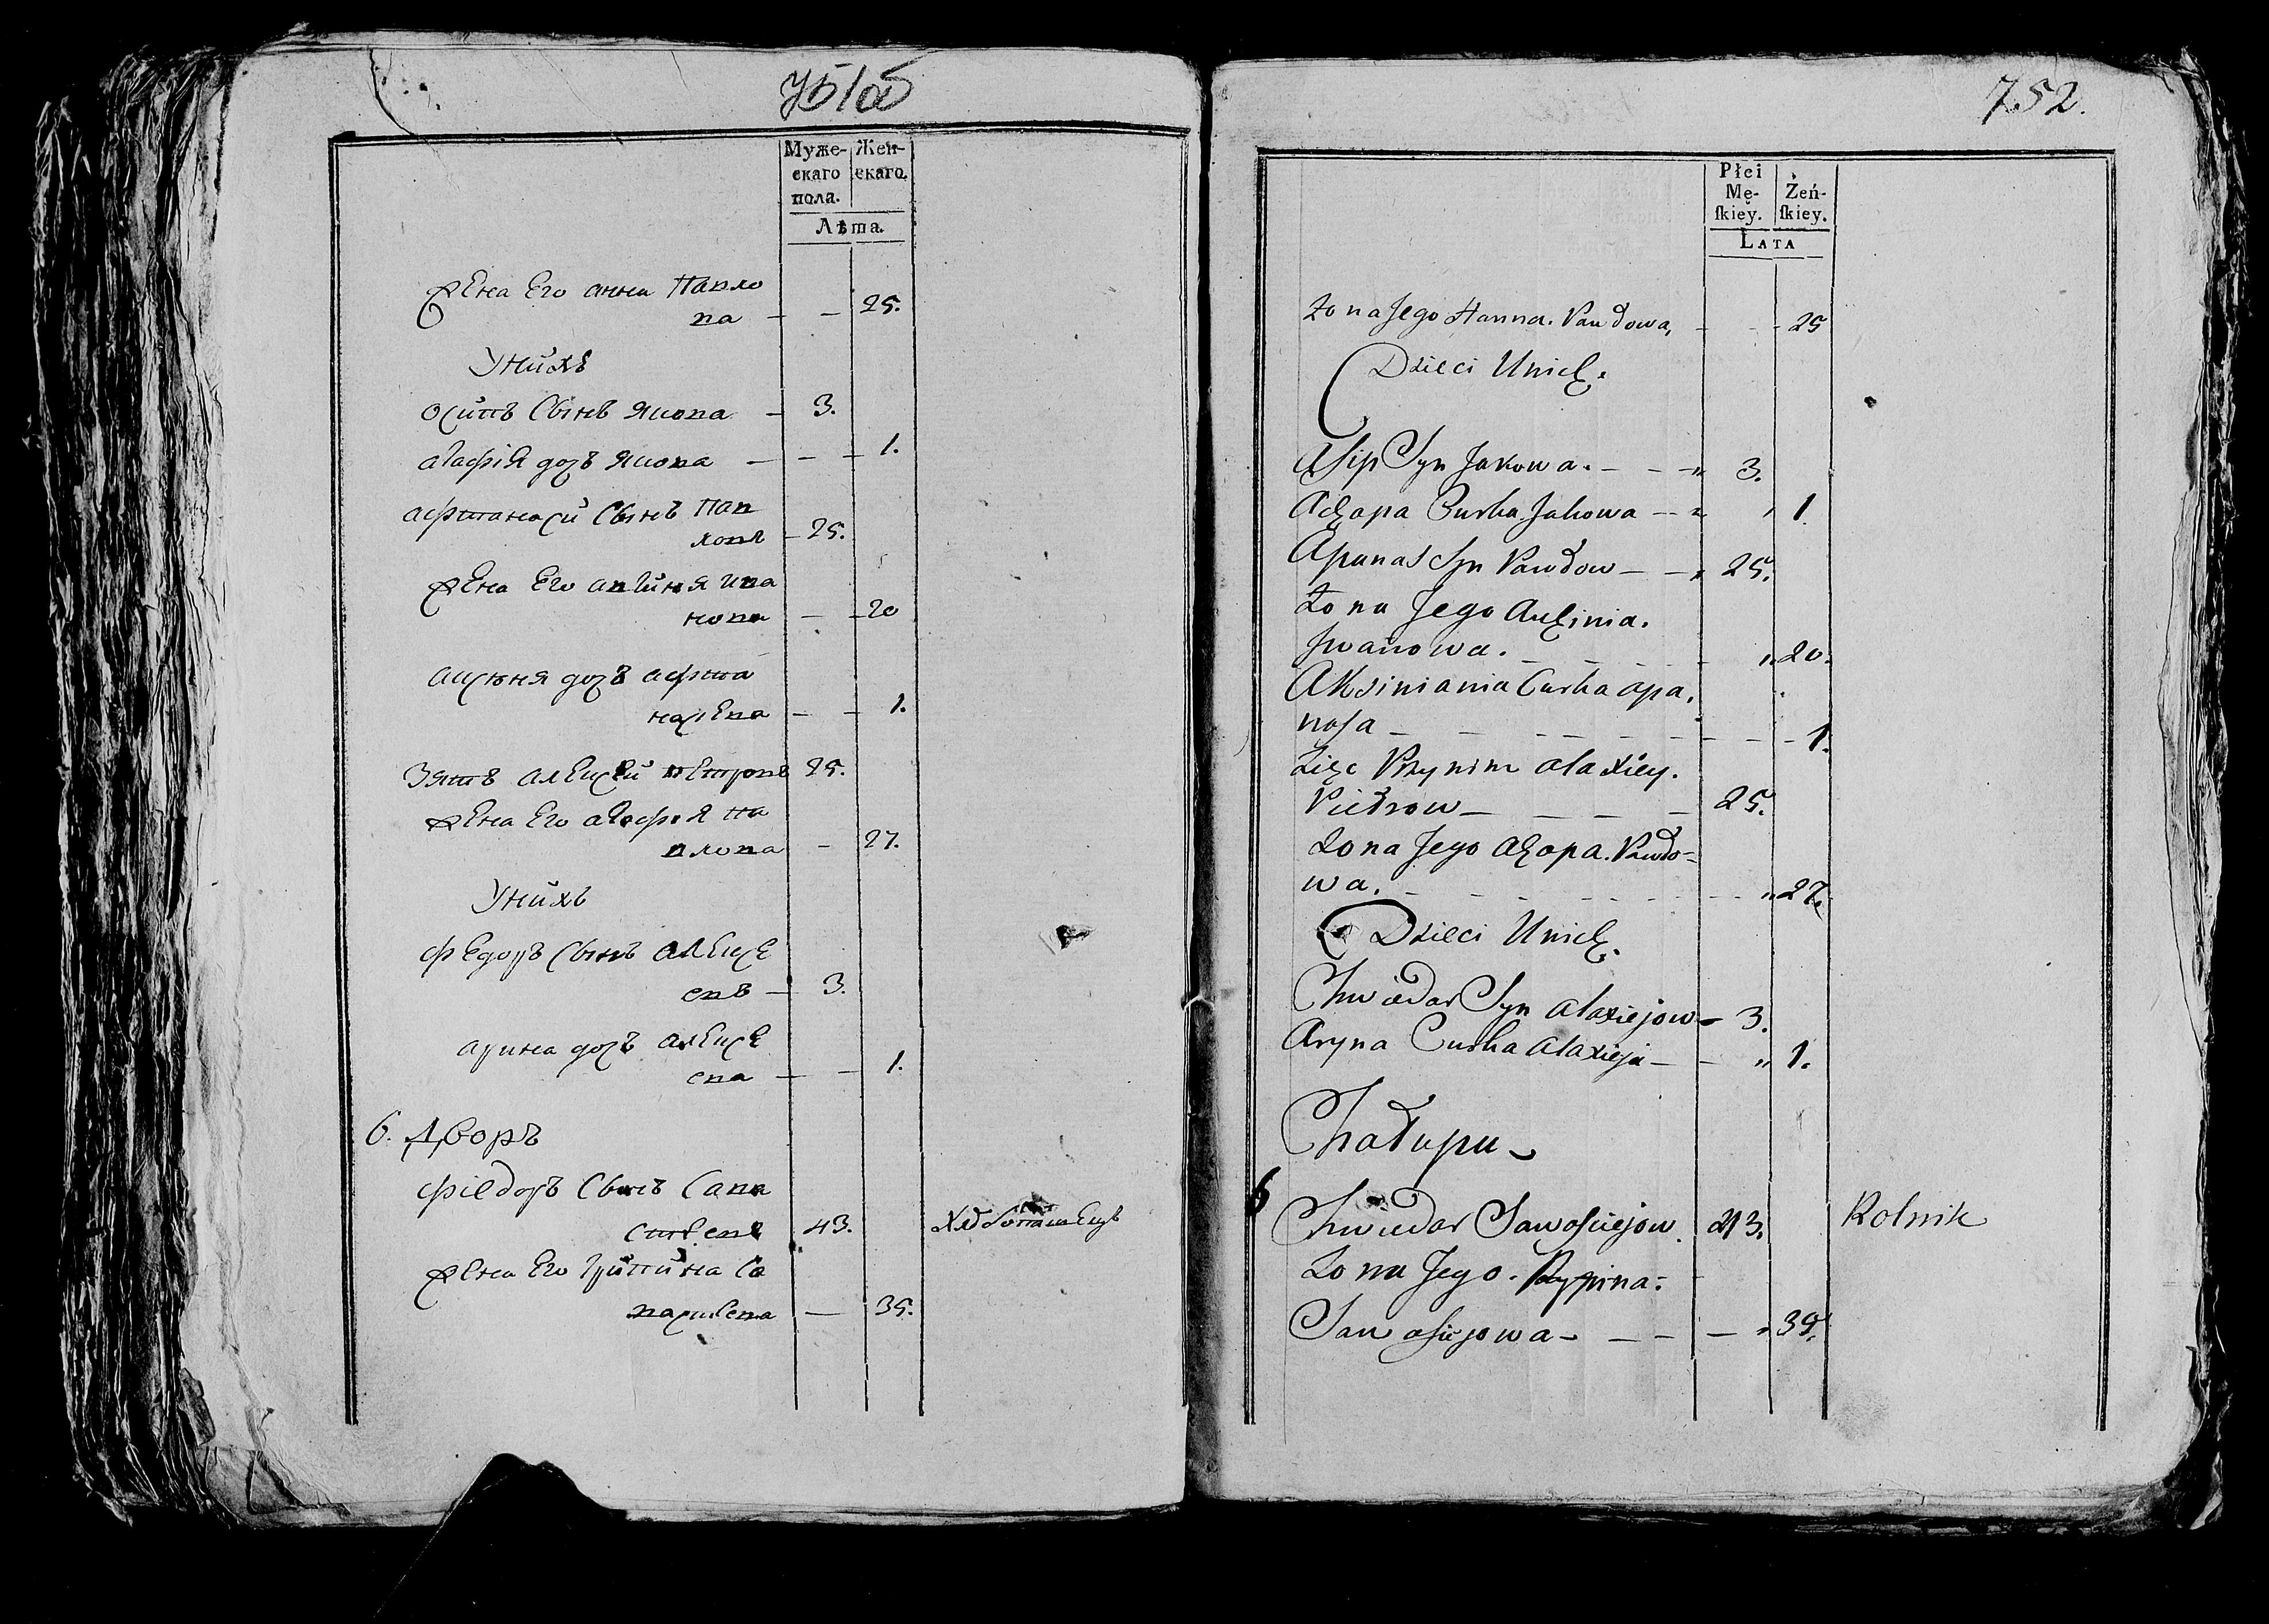 751об
Муже-
скаго
пола.
Жен-
скаго.
Лѣта.
жена Его анна Павло
ва — — 25.
У нихъ
осипъ Сынъ якова — 3.
агафiя дочь якова — — — 1.
афтанасй Сынъ Пав
ловъ — 25.
жена Его авгинья ива
нова — — 20
аксюня дочь афта
насьева — — 1.
Зять алексей петровъ 25.
жена Его агафья па
влова — 27.
У нихъ
федоръ Сынъ алексе
евъ — 3.
арина дочь алексе
ева — — 1.
6. Дворъ
фiедоръ Сынъ Сава
стеевъ 43. Хлебопашецъ
жена Его Грипина Са
васьева — 35.
752.
Płci
Mę-
ſkiey.
Żeń-
ſkiey.
LATA
Żona Jego Hanna. Pawłowa, - - - 25
Dzieci Unich.
Asip Syn Jakowa. - - - „ 3.
Achapa Curka Jakowa - - „ „ 1.
Apanas Syn Pawłow - - „ 25.
Żona Jego Auhinia.
Jwanowa. - - - - „ 20.
Aksiniania Curka apa,
nasa - - - - - - - - 1.
Zięć Prynim alaxiey.
Pietrow - - - - 25.
Żona Jego Ahapa. Pawło-
wa. - - - - - - „ 27.
Dzieci Unich.
Chwiedar Syn alaxiejow - 3.
Aryna Curka alaxieja - - „ 1.
Chałupa -
6 Chwiedar Sawasciejow. 43. Rolnik
Żona Jego. Rypina:
Sawasiejowa - - - - „ 35.